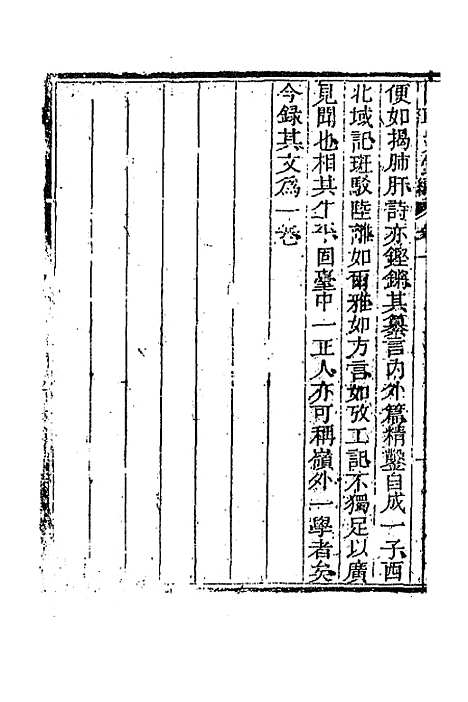 便如揭肺肝詩亦鏗鏘其蟇言内外篇精鑿自成一子西
北域記班駁陸離如爾雅如方言如攷工記不獨足以廣
見聞也相其生平固臺中一正人亦可稱嶺外一學者矣
今録其文爲一卷